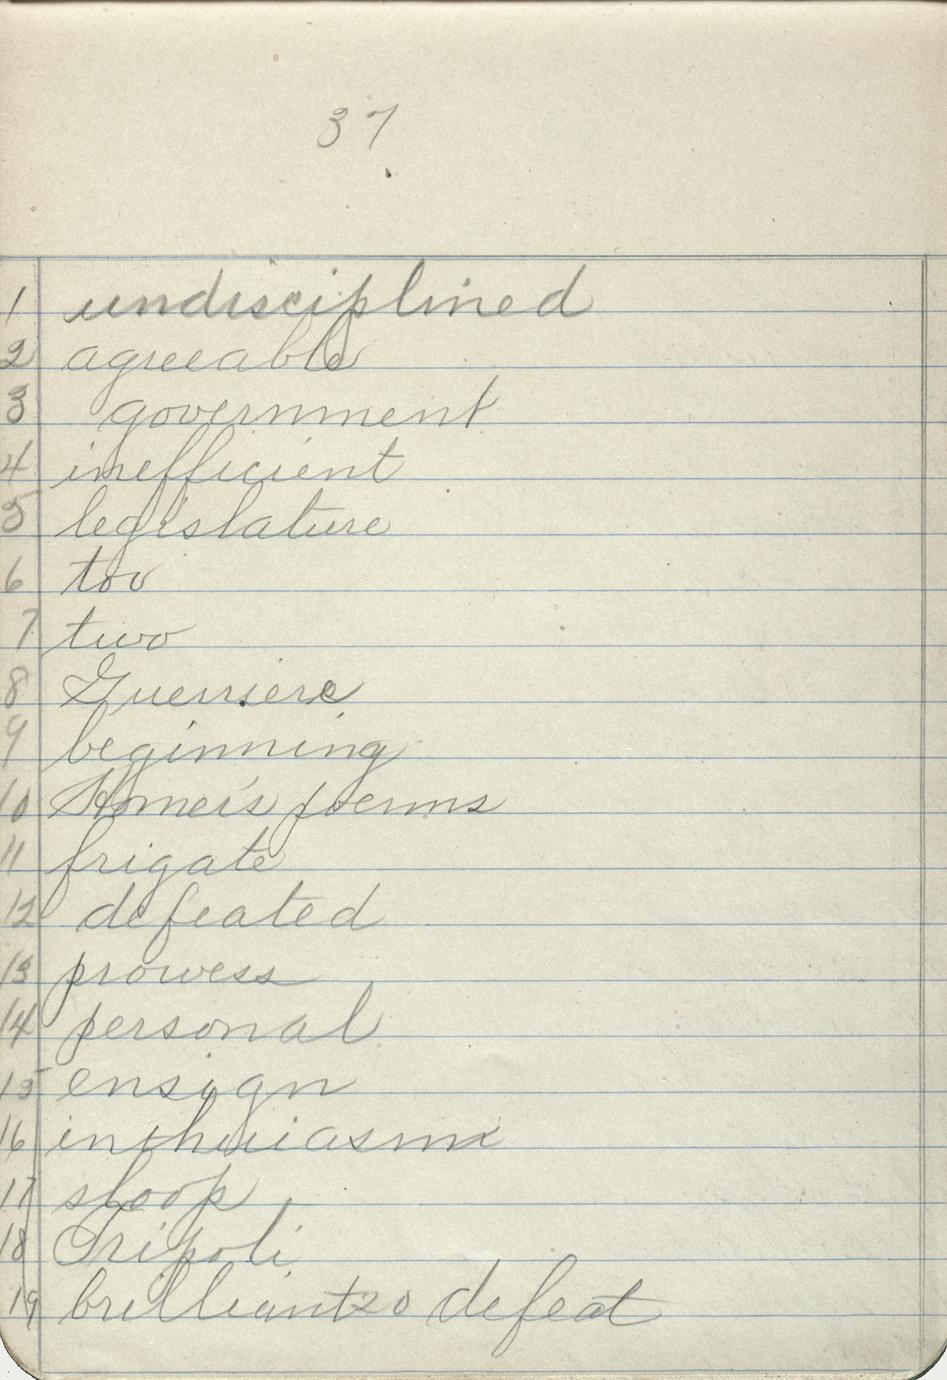 37
1 undisciplined
2 agreeable
3 government
4 inefficient
5 legislature
6 too
7 two
8 Guerriere
9 beginning
10 Homer's poems
11 frigate
12 defeated
13 prowess
14 personal
15 ensign
16 inthusiasm
17 sloop
18 Tripoli
19 brilliant 20 defeat